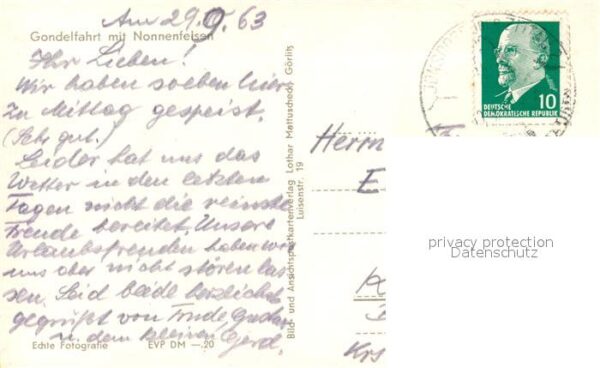 Am 29. 63
Gondelfahrt mit Nonnenfelsen
Ihr Lieben!
Wir haben soeben hier
zu Mittag gespeist.
(Sehr gut.)
Leider hat uns das
Wetter in den letzten
Tagen nicht die reinste
Freude bereitet, Unsere
Urlaubsfreuden haben wir
uns aber nicht stören las
sen. Seid beide herzlichst
gegrüßt von Trude, Gustav
u. dem kleinen Gerd.
Echte Fotografie EVP DM —,20
Bild- und Ansichtspostkartenverlag Lothar Mattuscheck, Görlitz
Luisenstr. 19
DEUTSCHE
DEMOKRATISCHE REPUBLIK
10
Herrn
E
Krs
privacy protection
Datenschutz